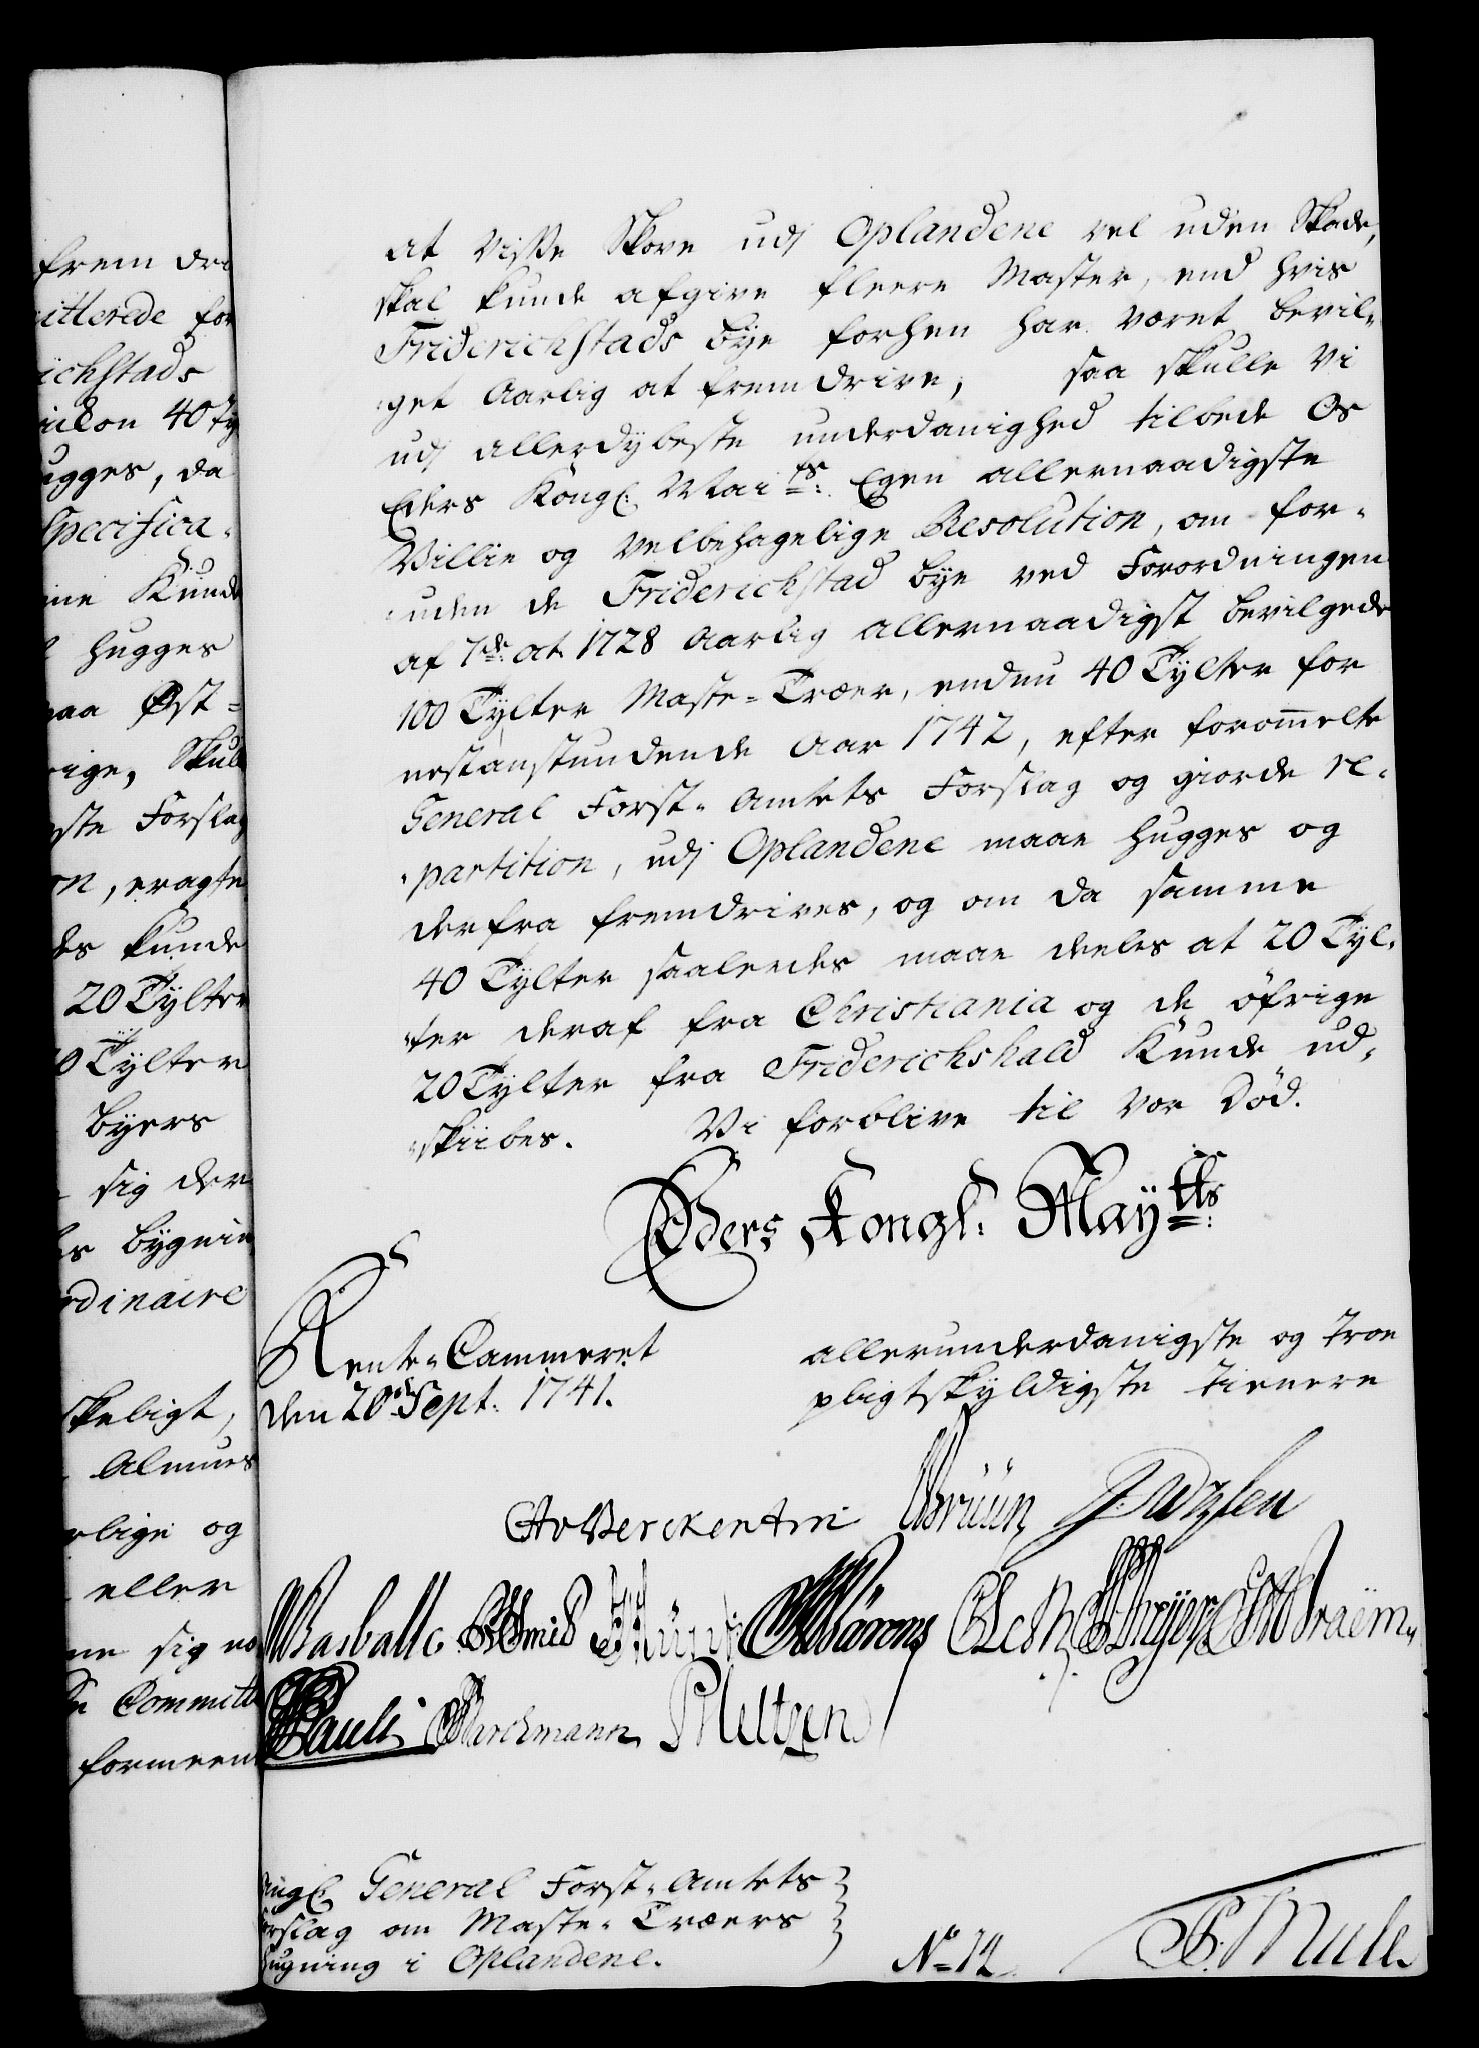 frem dri
itterede for
ichstads
40 Ty
ugges, da
Specifica-
ine Kunde
hugges
paa Øst-
rige, Skul
gste Forslag
on, eragte
des kunde
20 Tylter
0 Tylter
Byers
sig der
es bygnin
rdinaire
skeligt,
Almues
rlige og
eller
ne sig no
Committe
formeen
at visse Skove udj Oplandene vel uden Skade,
skal kunde afgive fleere Master, end hvis
Friderichstads Bye forhen har været bevil-
-get Aarlig at fremdrive, saa skulle Vi
udj allerdybeste underdanighed tilbede Os
Eders Kongl: Maits: Egen allernaadigste
Villie og Velbehagelige Resolution, om for-
-uden de Friderichstad Bye ved Forordningen
af 7de oct. 1728 Aarlig allernaadigst bevilgede
100 Tylter Maste-Træer, endnu 40 Tylter for
nestanstundende Aar 1742, efter forommelte
General Forst-Amtets Forslag og giorde re-
-partition, udj Oplandene maae hugges og
derfra fremdrives, og om da samme
40 Tylter saaledes maae deeles at 20 Tyl-
-ter deraf fra Christiania og de øfrige
20 Tylter fra Friderichshald Kunde ud-
-skiibes. Vi forblive til vor Død.
Eders Kongl: Maytts:
Rente-Cammeret
den 20de Sept: 1741.
allerunderdanigste og troe
pligtskyldigste tienere
CAvBerckentin Bruun
Basballe
Pauli Barchmann PMeltzen
General Forst-Amtets
orslag om Maste-Træers
hugning i Oplandene.
No 72